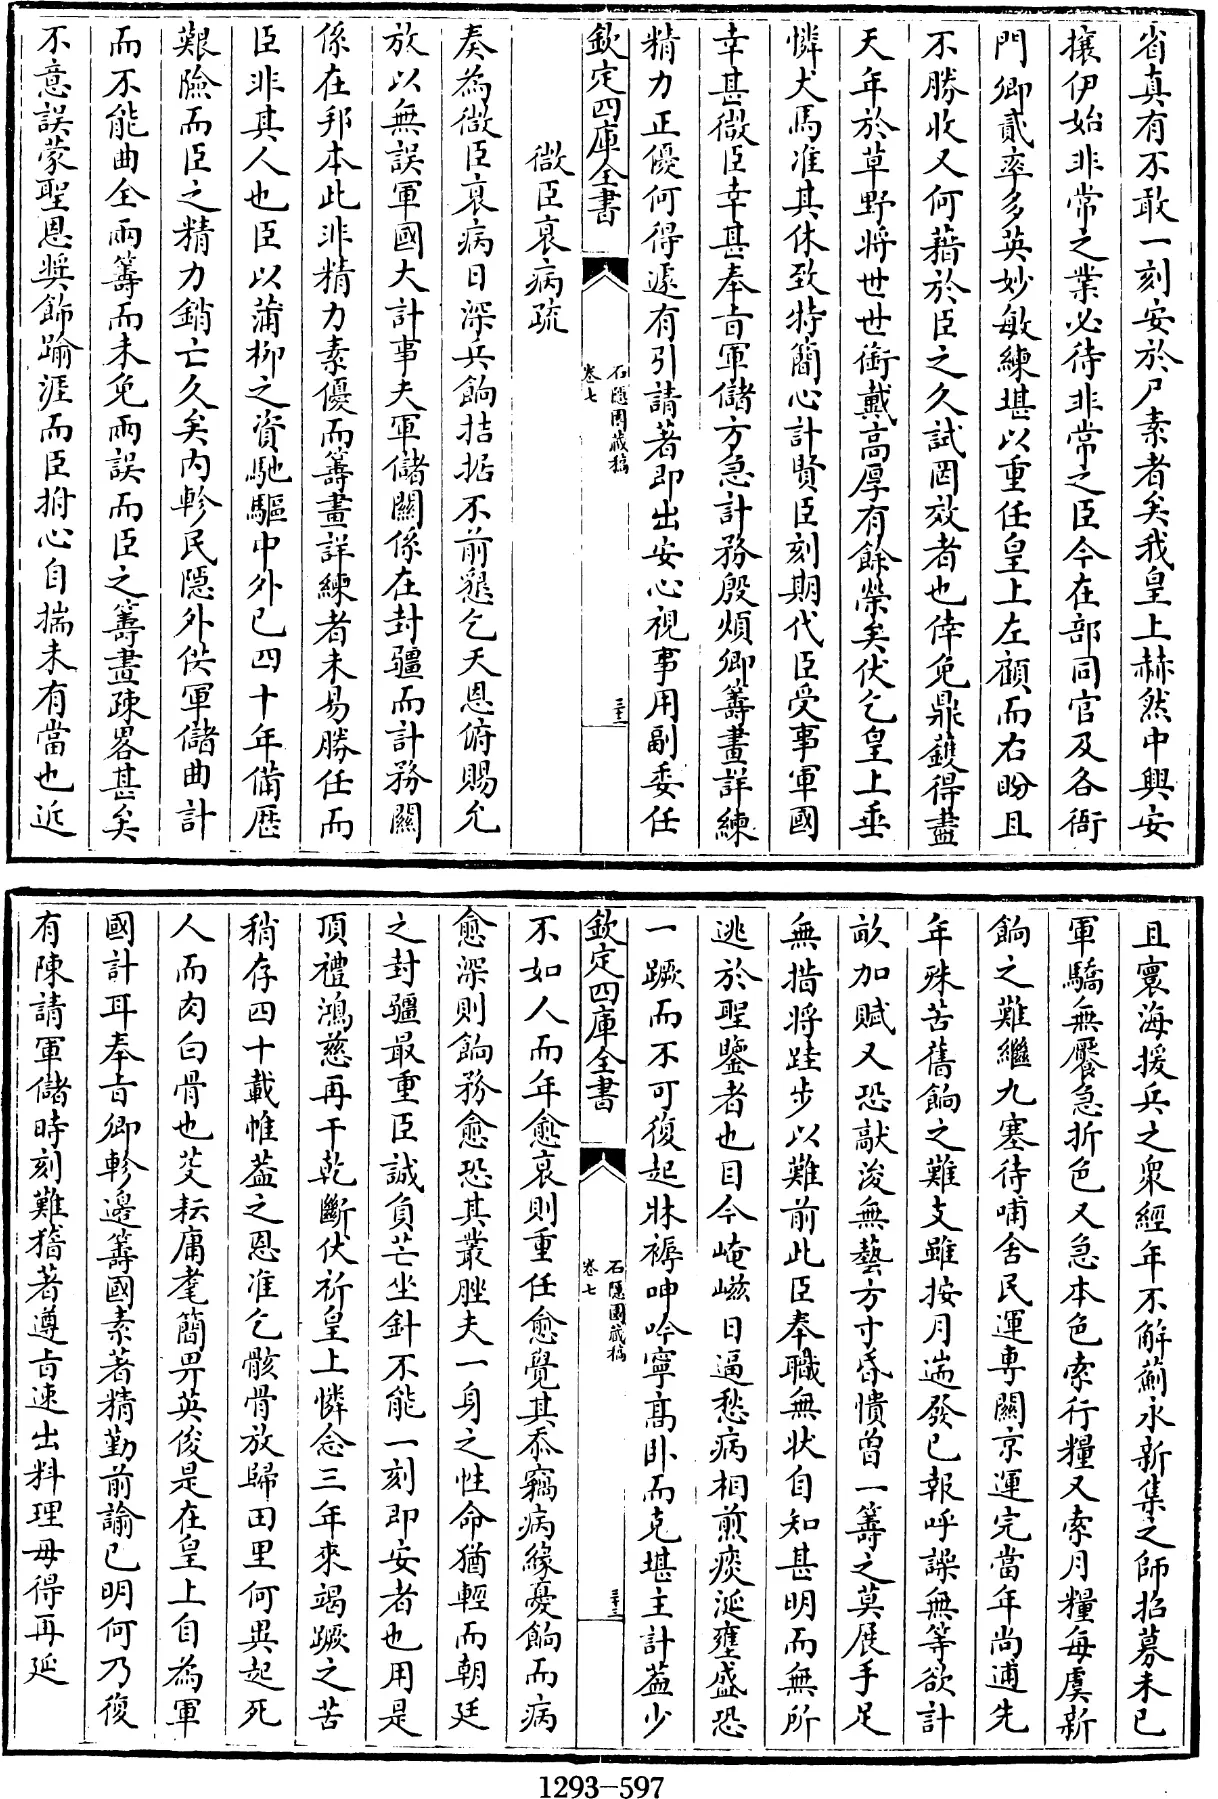 省真有不敢一刻安於尸素者矣我皇上赫然中興安
攘伊始非常之業必待非常之臣今在部同官及各衙
門卿貳率多英妙敏練堪以重任皇上左顧而右盼且
不勝收又何藉於臣之久試罔效者也倖免鼎鑊得盡
天年於草野將世世銜戴高厚有餘榮矣伏乞皇上垂
憐犬馬准其休致特簡心計賢臣刻期代臣受事軍國
幸甚微臣幸甚奉旨軍儲方急計務殷煩卿籌畫詳練
精力正優何得遽有引請著即出安心視事用副委任
欽定四庫全書
石隱園藏稿
卷七
三十二
微臣衰病疏
奏為微臣衰病日深兵餉拮据不前懇乞天恩俯賜允
放以無誤軍國大計事夫軍儲關係在封疆而計務關
係在邦本此非精力素優而籌畫詳練者未易勝任而
臣非其人也臣以蒲柳之資馳驅中外已四十年備歷
艱險而臣之精力銷亡久矣內軫民隱外供軍儲曲計
而不能曲全兩籌而未免兩誤而臣之籌畫疎畧甚矣
不意誤蒙聖恩奬飾踰涯而臣拊心自揣未有當也近
且寰海援兵之衆經年不解薊永新集之師招募未已
軍驕無饜急折色又急本色索行糧又索月糧每虞新
餉之難繼九塞待哺舍民運專關京運完當年尚逋先
年殊苦舊餉之難支雖按月遄發已報呼譟無等欲計
畝加賦又恐敲浚無藝方寸昏憒曾一籌之莫展手足
無措將跬步以難前此臣奉職無狀自知甚明而無所
逃於聖鑒者也目今崦嵫日逼愁病相煎痰涎壅盛恐
一蹶而不可復起牀褥呻吟寧高卧而克堪主計葢少
欽定四庫全書
石隱園藏稿
卷七
三十三
不如人而年愈衰則重任愈覺其忝竊病緣憂餉而病
愈深則餉務愈恐其叢脞夫一身之性命猶輕而朝廷
之封疆最重臣誠負芒坐針不能一刻即安者也用是
頂禮鴻慈再干乾斷伏祈皇上憐念三年來竭蹶之苦
稍存四十載帷葢之恩准乞骸骨放歸田里何異起死
人而肉白骨也芟耘庸耄簡畀英俊是在皇上自為軍
國計耳奉旨卿軫邊籌國素著精勤前諭已明何乃復
有陳請軍儲時刻難稽著遵旨速出料理毋得再延
1293-597